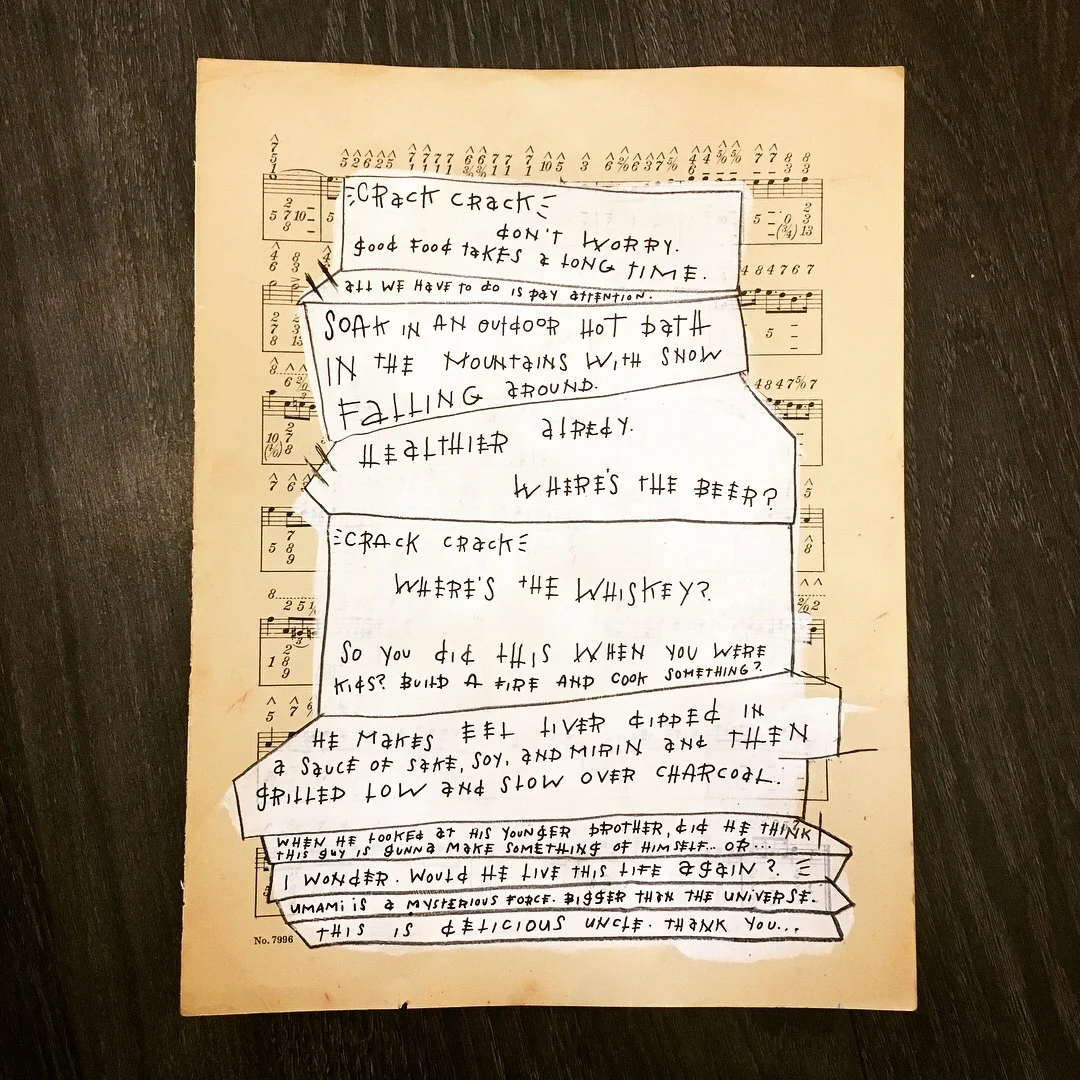 CRACK CRACK
DON'T WORRY.
GOOD FOOD TAKES A LONG TIME.
ALL WE HAVE TO DO IS PAY ATTENTION.
SOAK IN AN OUTDOOR HOT BATH
IN THE MOUNTAINS WITH SNOW
FALLING AROUND.
HEALTHIER ALREDY.
WHERE'S THE BEER?
CRACK CRACK
WHERE'S THE WHISKEY?
SO YOU DID THIS WHEN YOU WERE
KIDS? BUILD A FIRE AND COOK SOMETHING?
HE MAKES EEL LIVER DIPPED IN
A SAUCE OF SAKE, SOY, AND MIRIN AND THEN
GRILLED LOW AND SLOW OVER CHARCOAL.
WHEN HE LOOKED AT HIS YOUNGER BROTHER, DID HE THINK
THIS GUY IS GUNNA MAKE SOMETHING OF HIMSELF... OR...
I WONDER. WOULD HE LIVE THIS LIFE AGAIN?
UMAMI IS A MYSTERIOUS FORCE. BIGGER THAN THE UNIVERSE.
THIS IS DELICIOUS UNCLE. THANK YOU...
No. 7996